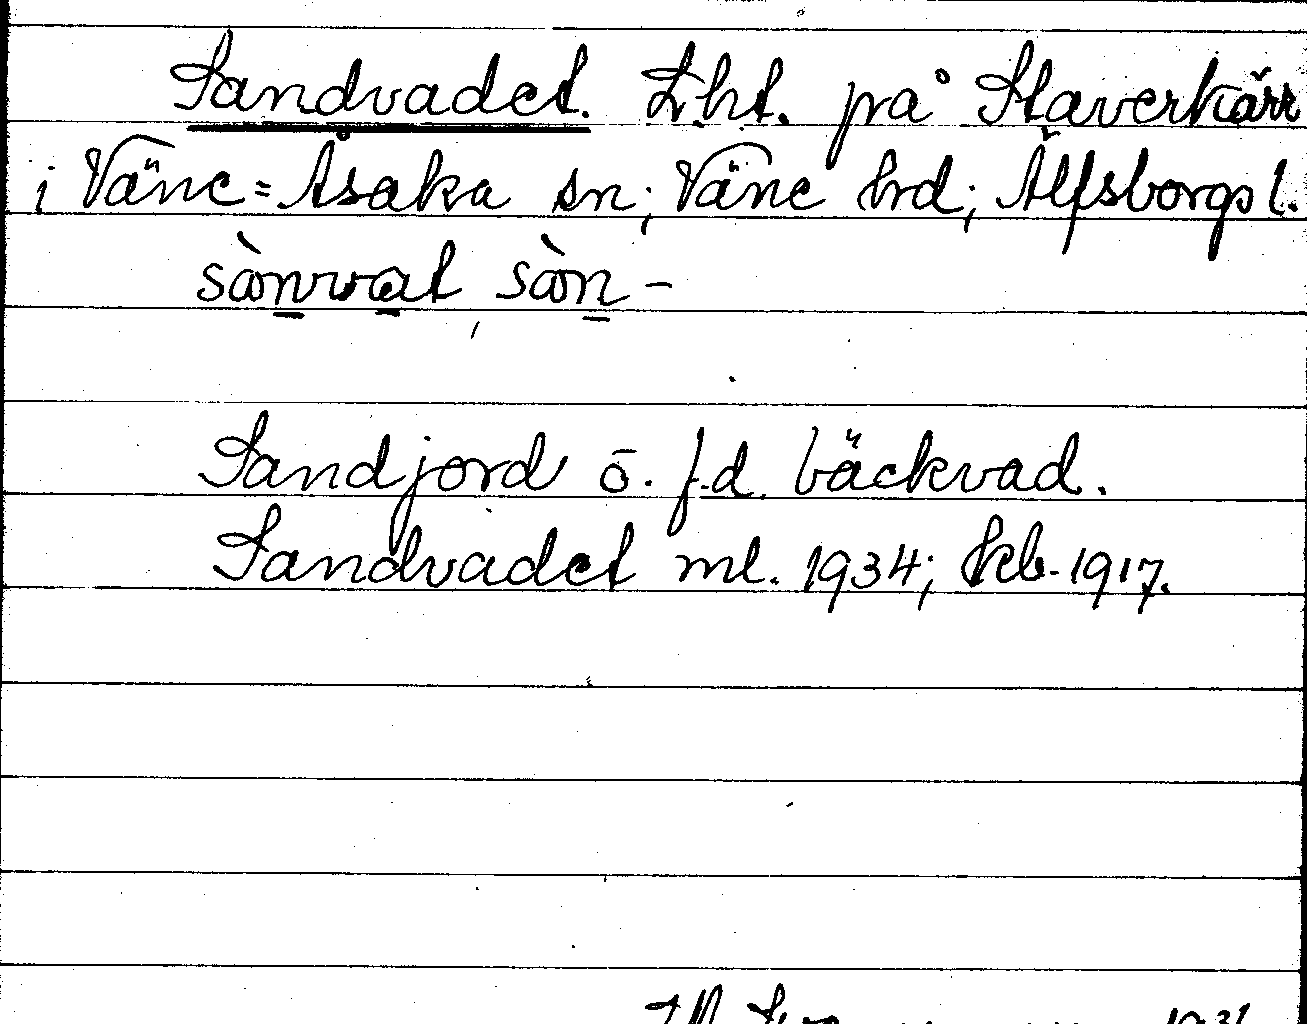 Sandvadet. Lht. på Staverkärr
i Väne=Åsaka sn; Väne hrd; Älfsborgs l.
sànvat, sàn-
Sandjord o. f.d. bäckvad.
Sandvadet ml. 1934; Kb. 1917.